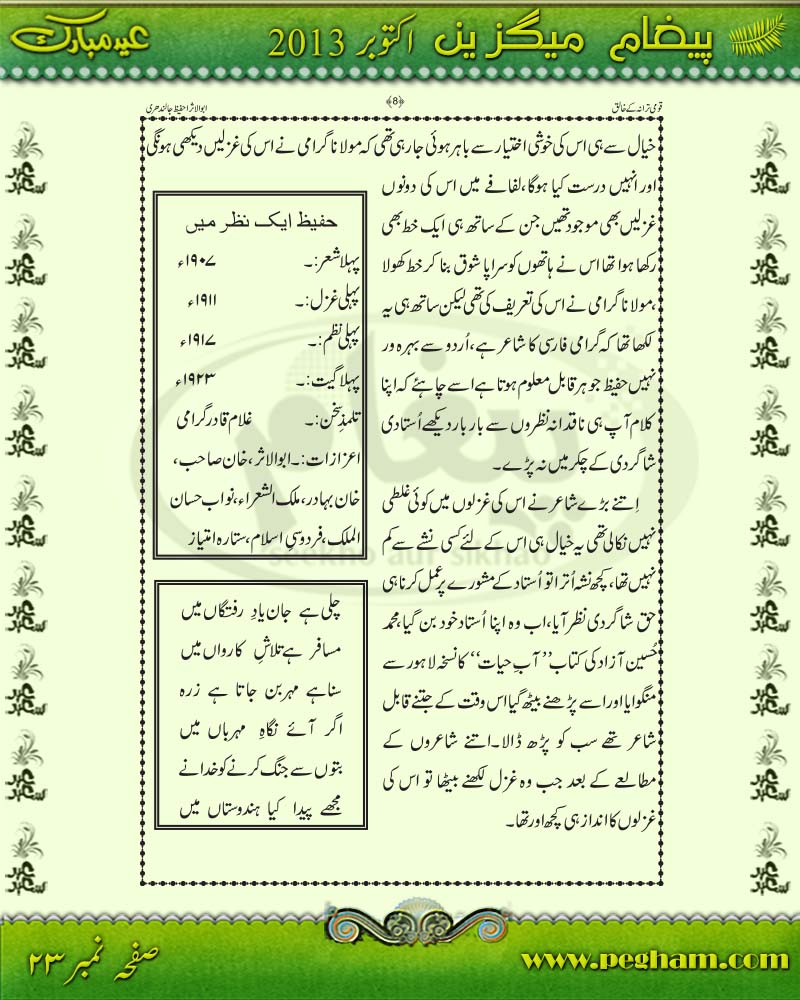 پیغام میگزین اکتوبر 2013
عید مبارک
قومی ترانہ کے خالق
﴿8﴾
ابوالاثر احفیظ جالندھری
خیال سے ہی اس کی خوشی اختیار سے باہر ہوئی جا رہی تھی کہ مولانا گرامی نے اس کی غزلیں دیکھی ہونگی
اور انہیں درست کیا ہوگا، لفافے میں اس کی دونوں
غزلیں بھی موجود تھیں جن کے ساتھ ہی ایک خط بھی
رکھا ہوا تھا اس نے ہاتھوں کو سراپا شوق بنا کر خط کھولا
،مولانا گرامی نے اس کی تعریف کی تھی لیکن ساتھ ہی یہ
لکھا تھا کہ گرامی فارسی کا شاعر ہے، اُردو سے بہرہ ور
نہیں حفیظ جوہر قابل معلوم ہوتا ہے اسے چاہئے کہ اپنا
کلام آپ ہی ناقدانہ نظروں سے بار بار دیکھے اُستادی
شاگردی کے چکر میں نہ پڑے۔
اِتنے بڑے شاعر نے اس کی غزلوں میں کوئی غلطی
نہیں نکالی تھی یہ خیال ہی اس کے لئے کسی نشے سے کم
نہیں تھا، کچھ نشہ اُترا تو اُستاد کے مشورے پر عمل کرنا ہی
حق شاگردی نظر آیا، اب وہ اپنا اُستاد خود بن گیا، محمد
حُسین آزاد کی کتاب ’’آبِ حیات‘‘ کا نسخہ لاہور سے
منگوایا اور اسے پڑھنے بیٹھ گیا اس وقت کے جتنے قابل
شاعر تھے سب کو پڑھ ڈالا۔ اتنے شاعروں کے
مطالعے کے بعد جب وہ غزل لکھنے بیٹھا تو اس کی
غزلوں کا انداز ہی کچھ اور تھا۔
حفیظ ایک نظر میں
پہلا شعر:۔ ۱۹۰۷ء
پہلی غزل:۔ ۱۹۱۱ء
پہلی نظم:۔ ۱۹۱۷ء
پہلا گیت:۔ ۱۹۲۳ء
تلمذِ سخن:۔ غلام قادر گرامی
اعزازات:۔ ابوالاثر، خان صاحب،
خان بہادر، ملک الشعراء، نواب حسان
الملک، فردوسیِ اسلام، ستارہ امتیاز
چلی ہے جان یادِ رفتگاں میں
مسافر ہے تلاشِ کارواں میں
سنا ہے مہر بن جاتا ہے زرہ
اگر آئے نگاہِ مہرباں میں
بتوں سے جنگ کرنے کو خدا نے
مجھے پیدا کیا ہندوستاں میں
پیغام
seekho aur sikhao
صفحہ نمبر ۲۳
www.pegham.com